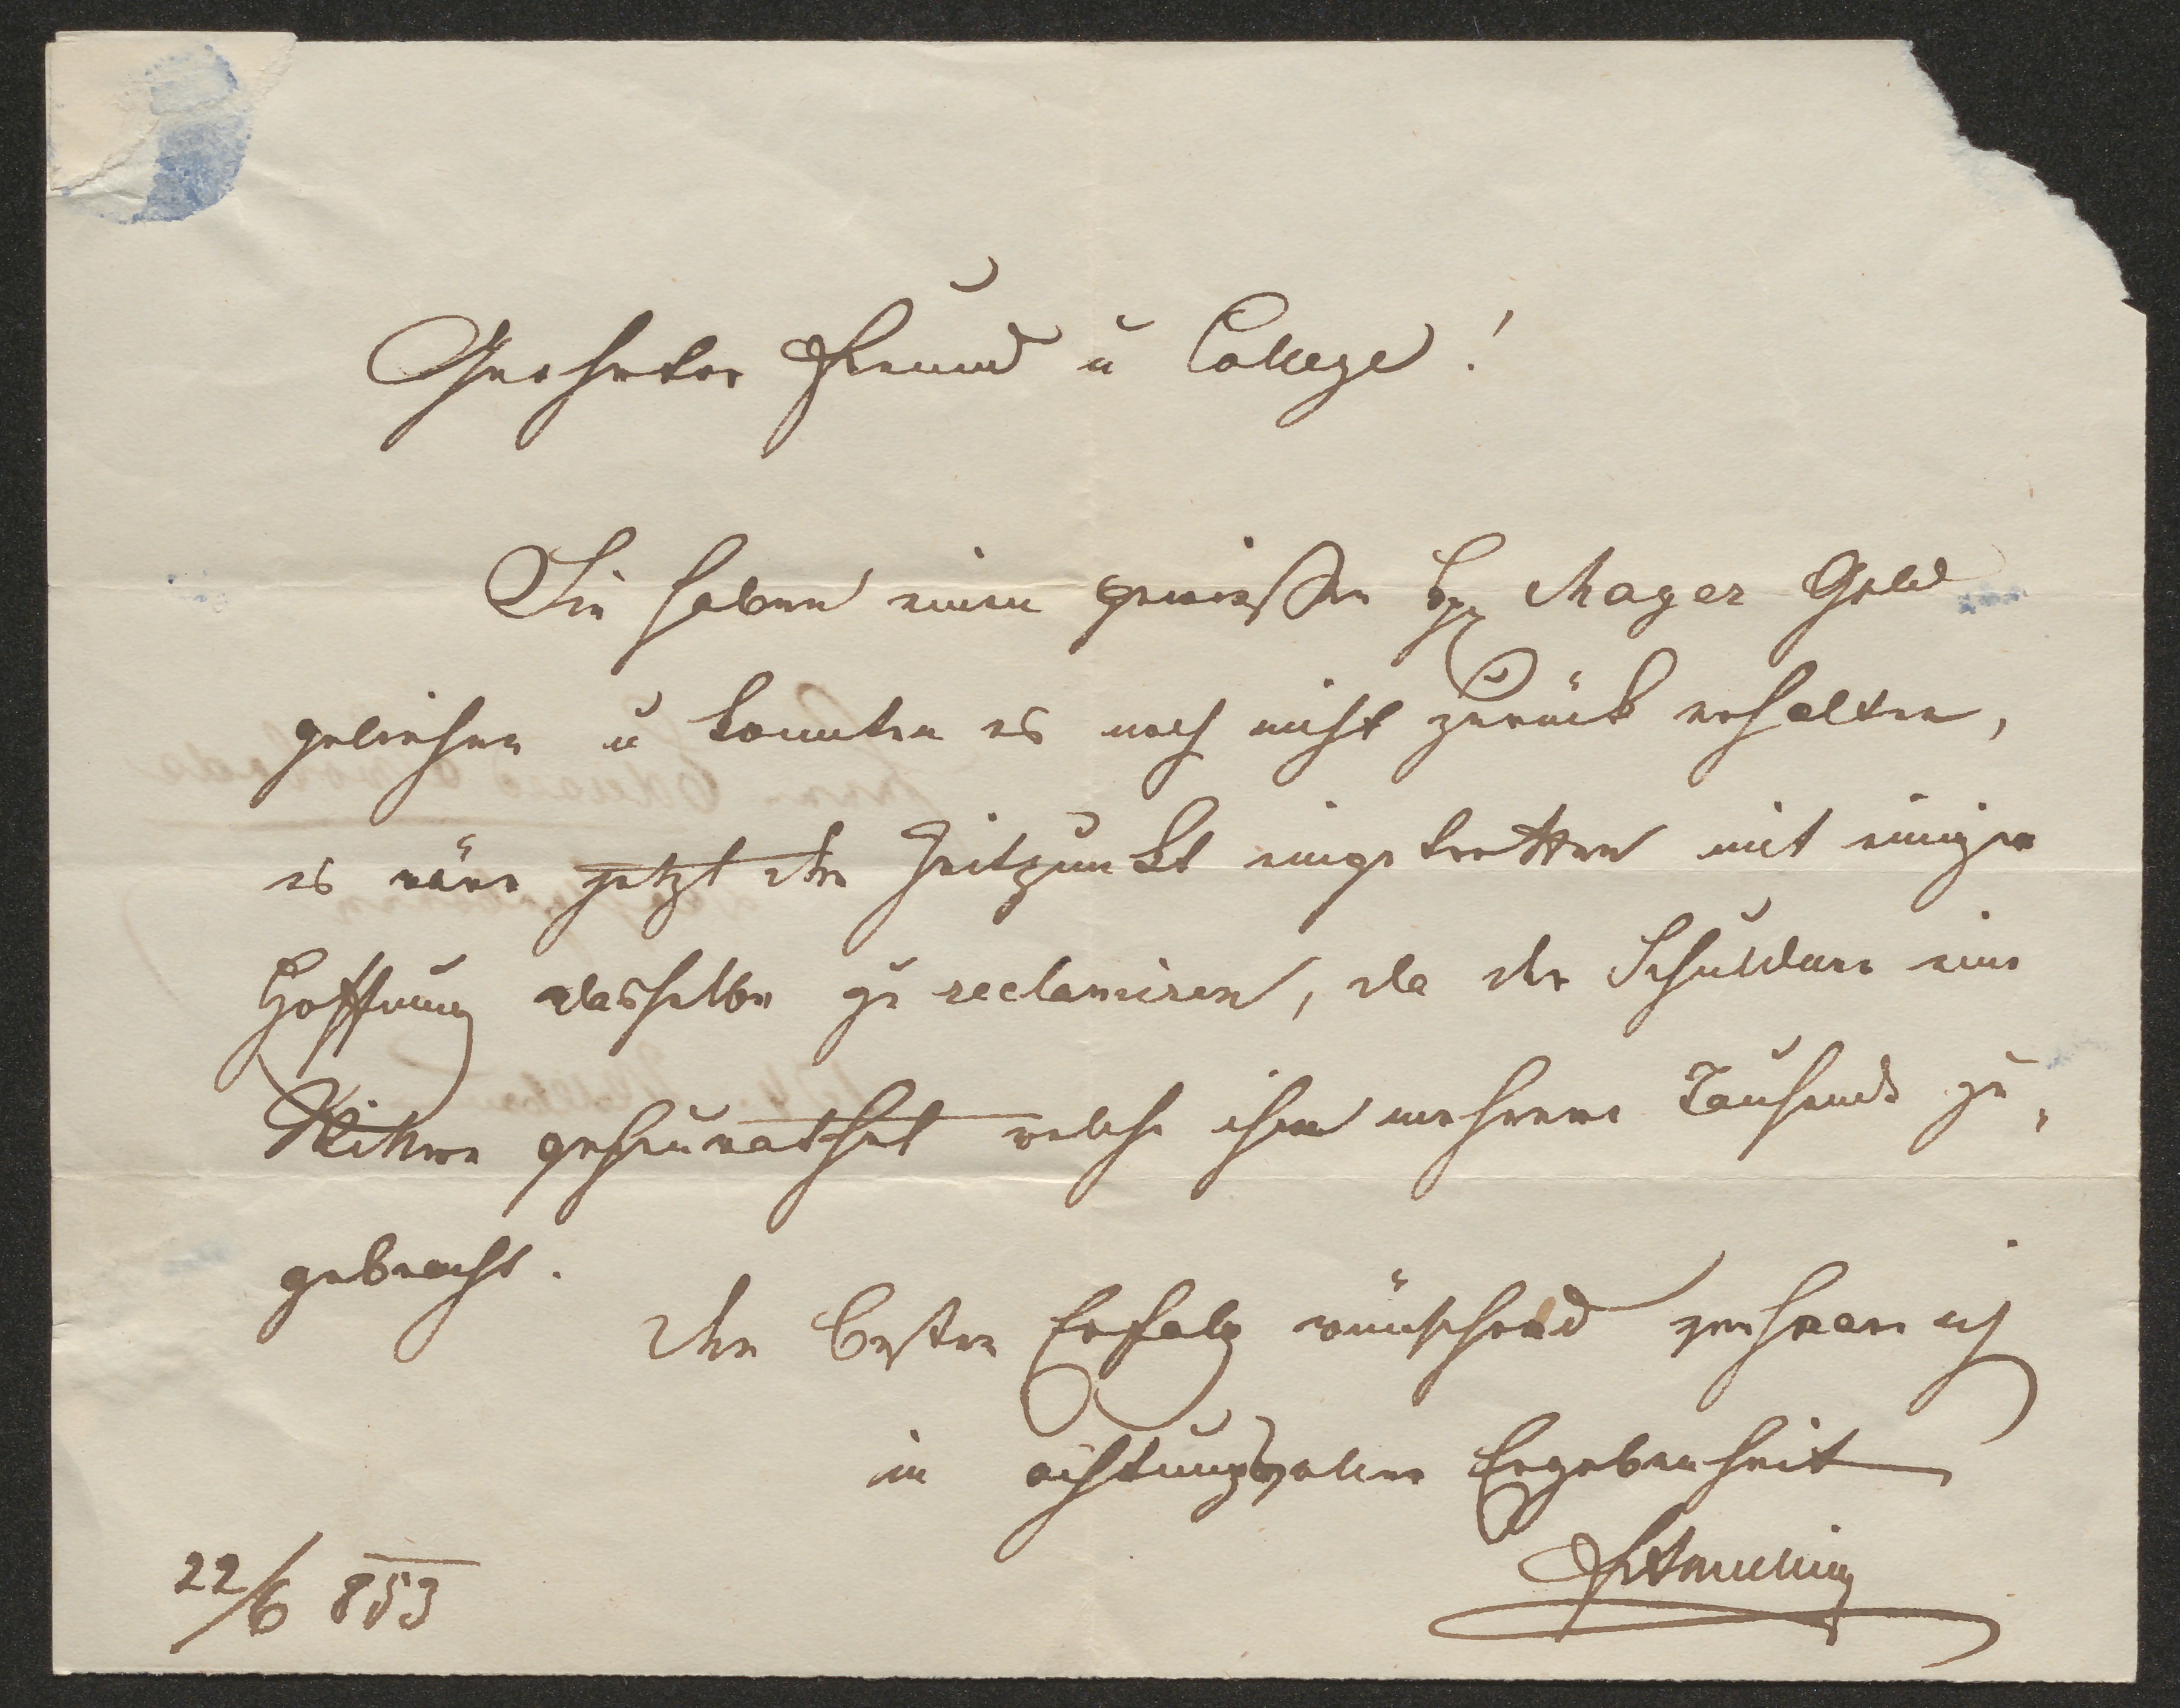 Geehrter Freund u College!
Sie haben einen gewissen H Mayer Geld
geliehen u konnten es noch nicht zurück erhalten,
es wäre jetzt der Zeitpunkt eingetretten mit einiger
Hoffnung dasselbe zu reclamiren, da der Schuldner eine
Wittwe geheurathet welche ihm mehrere Tausende zu„
gebracht.
Den besten Erfolg wünschend verharre ich
in achtungsvoller Ergebenheit
22/6 853